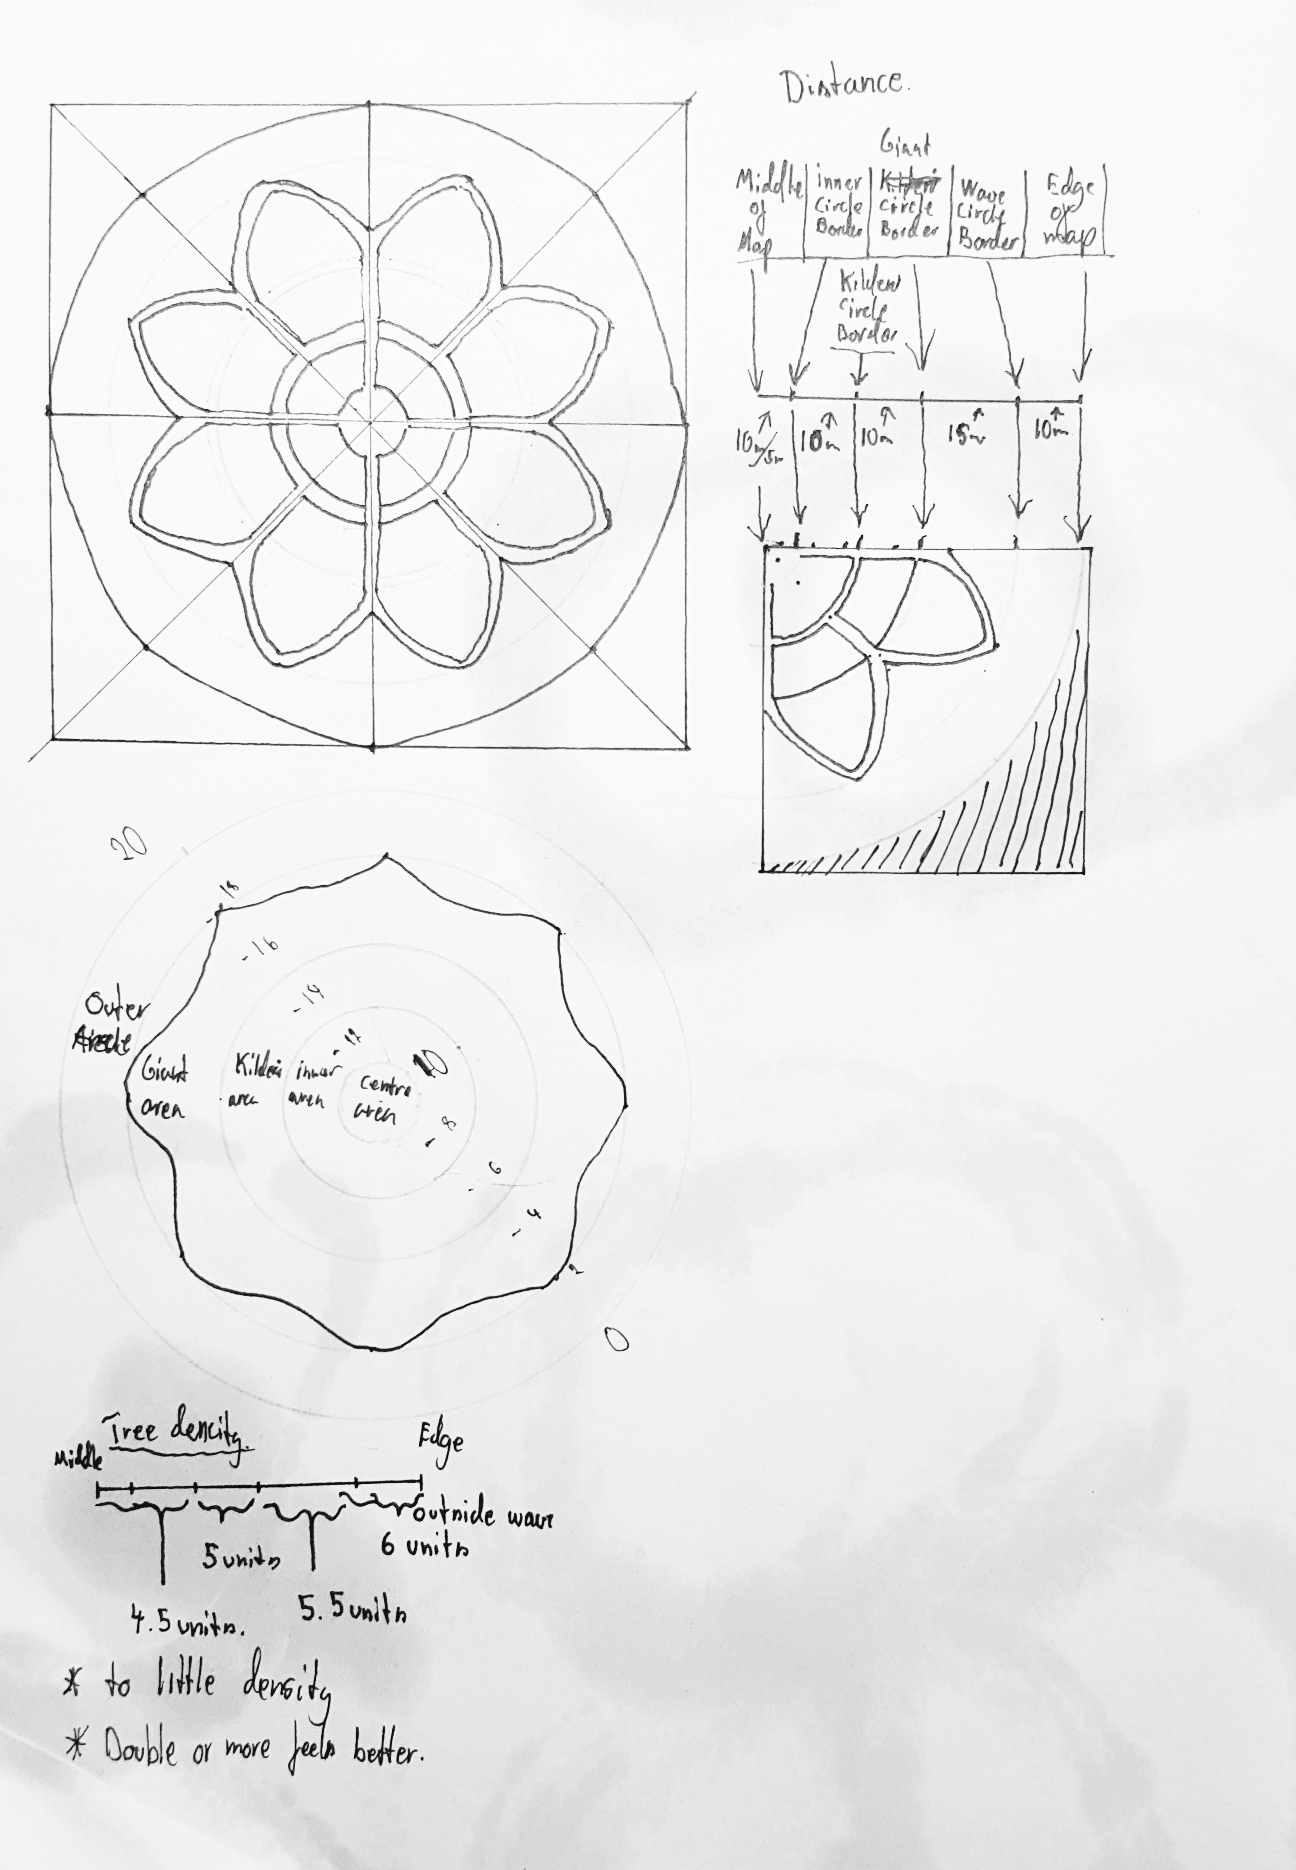 Distance.
Giant
Middle of Map
inner Circle Border
circle Border
Wave Circle Border
Edge of map
Circle Border
10m/5m
10m
10m
15m
10m
20
18
-16
-14
12
10
-8
-6
-4
2
0
Outer
Giant area
area
inner area
Centre area
Tree dencity.
Middle
Edge
outside wave
5 units
6 units
4.5 units.
5.5 units
* to little density
* Double or more feels better.